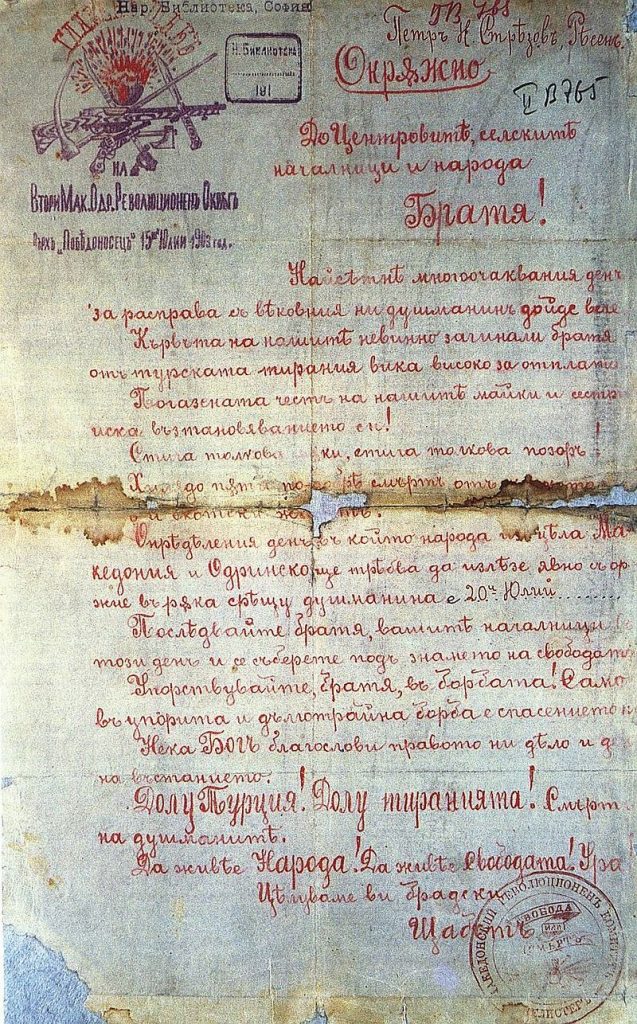 Нар. Библиотека, София
Н. Библиотека
181
Петръ Н Стрѣзовъ, Рѣсенъ.
Окрѫжно
II В 765
До Центровитѣ, селскитѣ
началници и народа
Братя!
НА
Втори Мак. Одр. Революционенъ Окрѫгъ
Върхъ „Победоносецъ" 15й Юлий 1903 год.
Найсетнѣ многоочаквания день
за расправа съ вѣковния ни душманинъ дойде вече
Кървьта на нашитѣ невинно загинали братя
отъ турската тирания вика високо за отплата
Погазената честь на нашитѣ майки и сестри
иска възтановяванието си!
Стига толкова мѫки, стига толкова позоръ!
по-добрѣ смърть отъ
и скотски животъ.
Опрѣдѣления день въ който народа изъ цѣла Ма-
кедония и Одринско ще трѣбва да излѣзе явно съ орѫ-
жие въ рѫка срѣщу душманина е 20й Юлий
Послѣдвайте братя, вашитѣ началници въ
този день и се съберете подъ знамето на свободата
Упорствувайте, братя, въ борбата! Само
въ упорита и дълготрайна борба е спасението ни
Нека Богъ благослови правото ни дѣло и деня
на въстанието.
Долу Турция! Долу тиранията! Смърть
на душманитѣ.
Да живѣе Народа! Да живѣе Свободата! Ура
Цѣлуваме ви братски
Щабътъ
МАКЕДОНСКИЙ РЕВОЛЮЦИОНЕНЪ КОМИТЕТЪ
СВОБОДА
ИЛИ
СМЕРТЬ